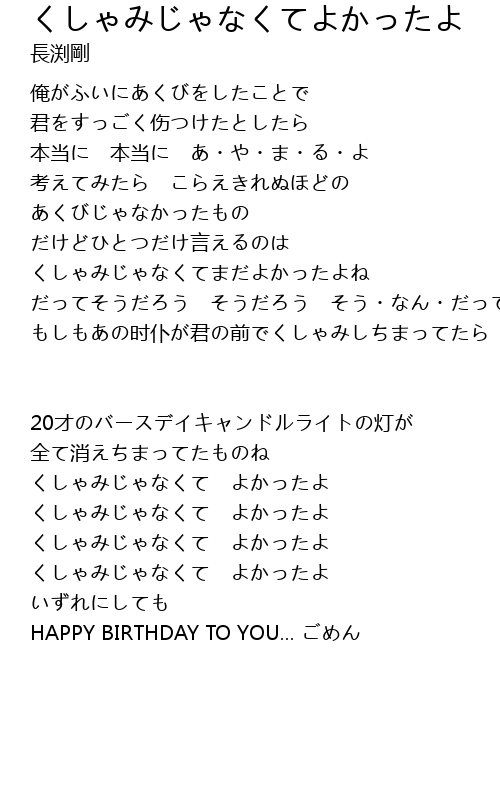 くしゃみじゃなくてよかったよ
長渕剛
俺がふいにあくびをしたことで
君をすっごく伤つけたとしたら
本当に　本当に　あ・や・ま・る・よ
考えてみたら　こらえきれぬほどの
あくびじゃなかったもの
だけどひとつだけ言えるのは
くしゃみじゃなくてまだよかったよね
だってそうだろう　そうだろう　そう・なん・だって
もしもあの时仆が君の前でくしゃみしちまってたら
20才のバースデイキャンドルライトの灯が
全て消えちまってたものね
くしゃみじゃなくて　よかったよ
くしゃみじゃなくて　よかったよ
くしゃみじゃなくて　よかったよ
くしゃみじゃなくて　よかったよ
いずれにしても
HAPPY BIRTHDAY TO YOU... ごめん